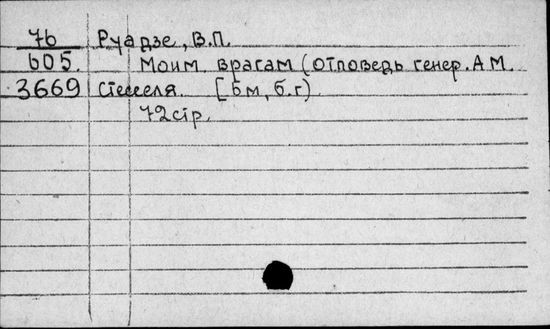 76 Руадзе, В.П.
605. Моим врагам (отповедь генер. А М.
3669 Стесселя. [б м, б.г)
72 стр.